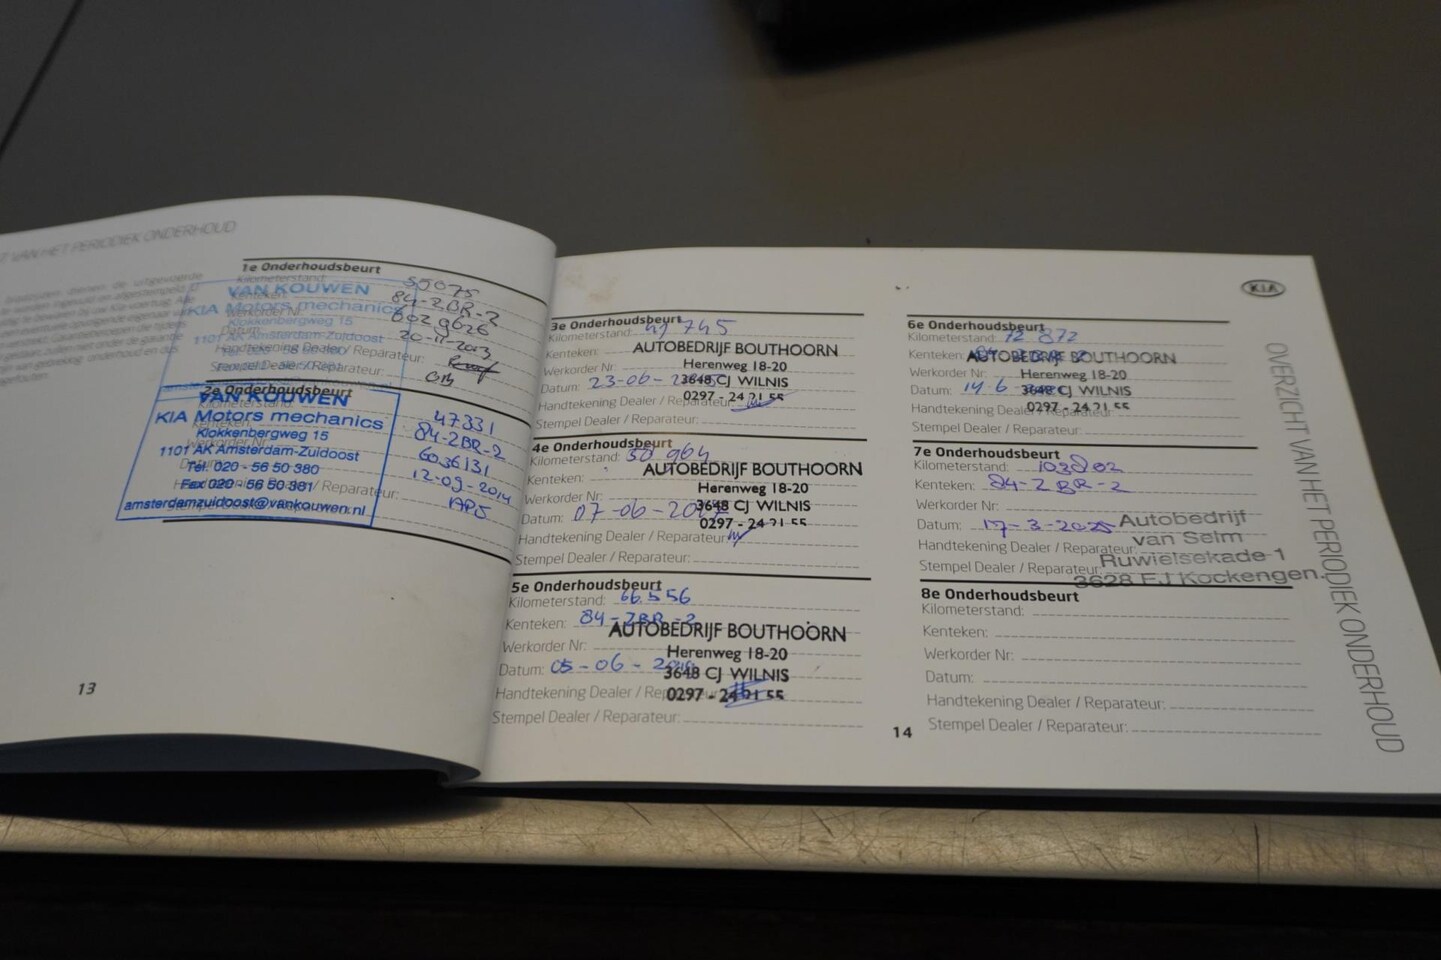 VAN HET PERIODIEK ONDERHOUD
1e Onderhoudsbeurt
Kilometerstand:
VAN KOUWEN
Kenteken: 84-ZBR-2
KIA Motors mechanics
6029626
Klokkenbergweg 15
Datum: 20-11-2013
1101 AK Amsterdam-Zuidoost
Handtekening Dealer / Reparateur:
Stempel Dealer / Reparateur:
2e Onderhoudsbeurt
VAN KOUWEN
47331
KIA Motors mechanics
84-ZBR-2
Klokkenbergweg 15
6036131
1101 AK Amsterdam-Zuidoost
12-09-2014
Tel. 020 - 56 50 380
Fax 020 - 56 50 381
/ Reparateur:
amsterdamzuidoost@vankouwen.nl
13
3e Onderhoudsbeurt
Kilometerstand: 745
Kenteken:
AUTOBEDRIJF BOUTHOORN
Werkorder Nr:
Herenweg 18-20
Datum: 23-06-
3648 CJ WILNIS
Handtekening Dealer / Reparateur:
0297 - 24 21 55
Stempel Dealer / Reparateur:
4e Onderhoudsbeurt
Kilometerstand: 50 964
Kenteken:
AUTOBEDRIJF BOUTHOORN
Werkorder Nr:
Herenweg 18-20
Datum: 07-06-
3648 CJ WILNIS
0297 - 24 21 55
Handtekening Dealer / Reparateur:
Stempel Dealer / Reparateur:
5e Onderhoudsbeurt
Kilometerstand: 66.556
Kenteken: 84-ZBR-2
AUTOBEDRIJF BOUTHOORN
Werkorder Nr:
Herenweg 18-20
Datum: 05-06-
3648 CJ WILNIS
Handtekening Dealer / Reparateur:
0297 - 24 21 55
Stempel Dealer / Reparateur:
14
KIA
6e Onderhoudsbeurt
Kilometerstand: 72 872
Kenteken:
AUTOBEDRIJF BOUTHOORN
Werkorder Nr:
Herenweg 18-20
Datum: 14 6
3648 CJ WILNIS
Handtekening Dealer / Reparateur:
0297 - 24 21 55
Stempel Dealer / Reparateur:
7e Onderhoudsbeurt
Kilometerstand: 103802
Kenteken: 84-ZBR-2
Werkorder Nr:
Datum: 17-3-2025
Autobedrijf
van Selm
Handtekening Dealer / Reparateur:
Ruwielsekade 1
Stempel Dealer / Reparateur:
3628 EJ Kockengen
8e Onderhoudsbeurt
Kilometerstand:
Kenteken:
Werkorder Nr:
Datum:
Handtekening Dealer / Reparateur:
Stempel Dealer / Reparateur:
OVERZICHT VAN HET PERIODIEK ONDERHOUD